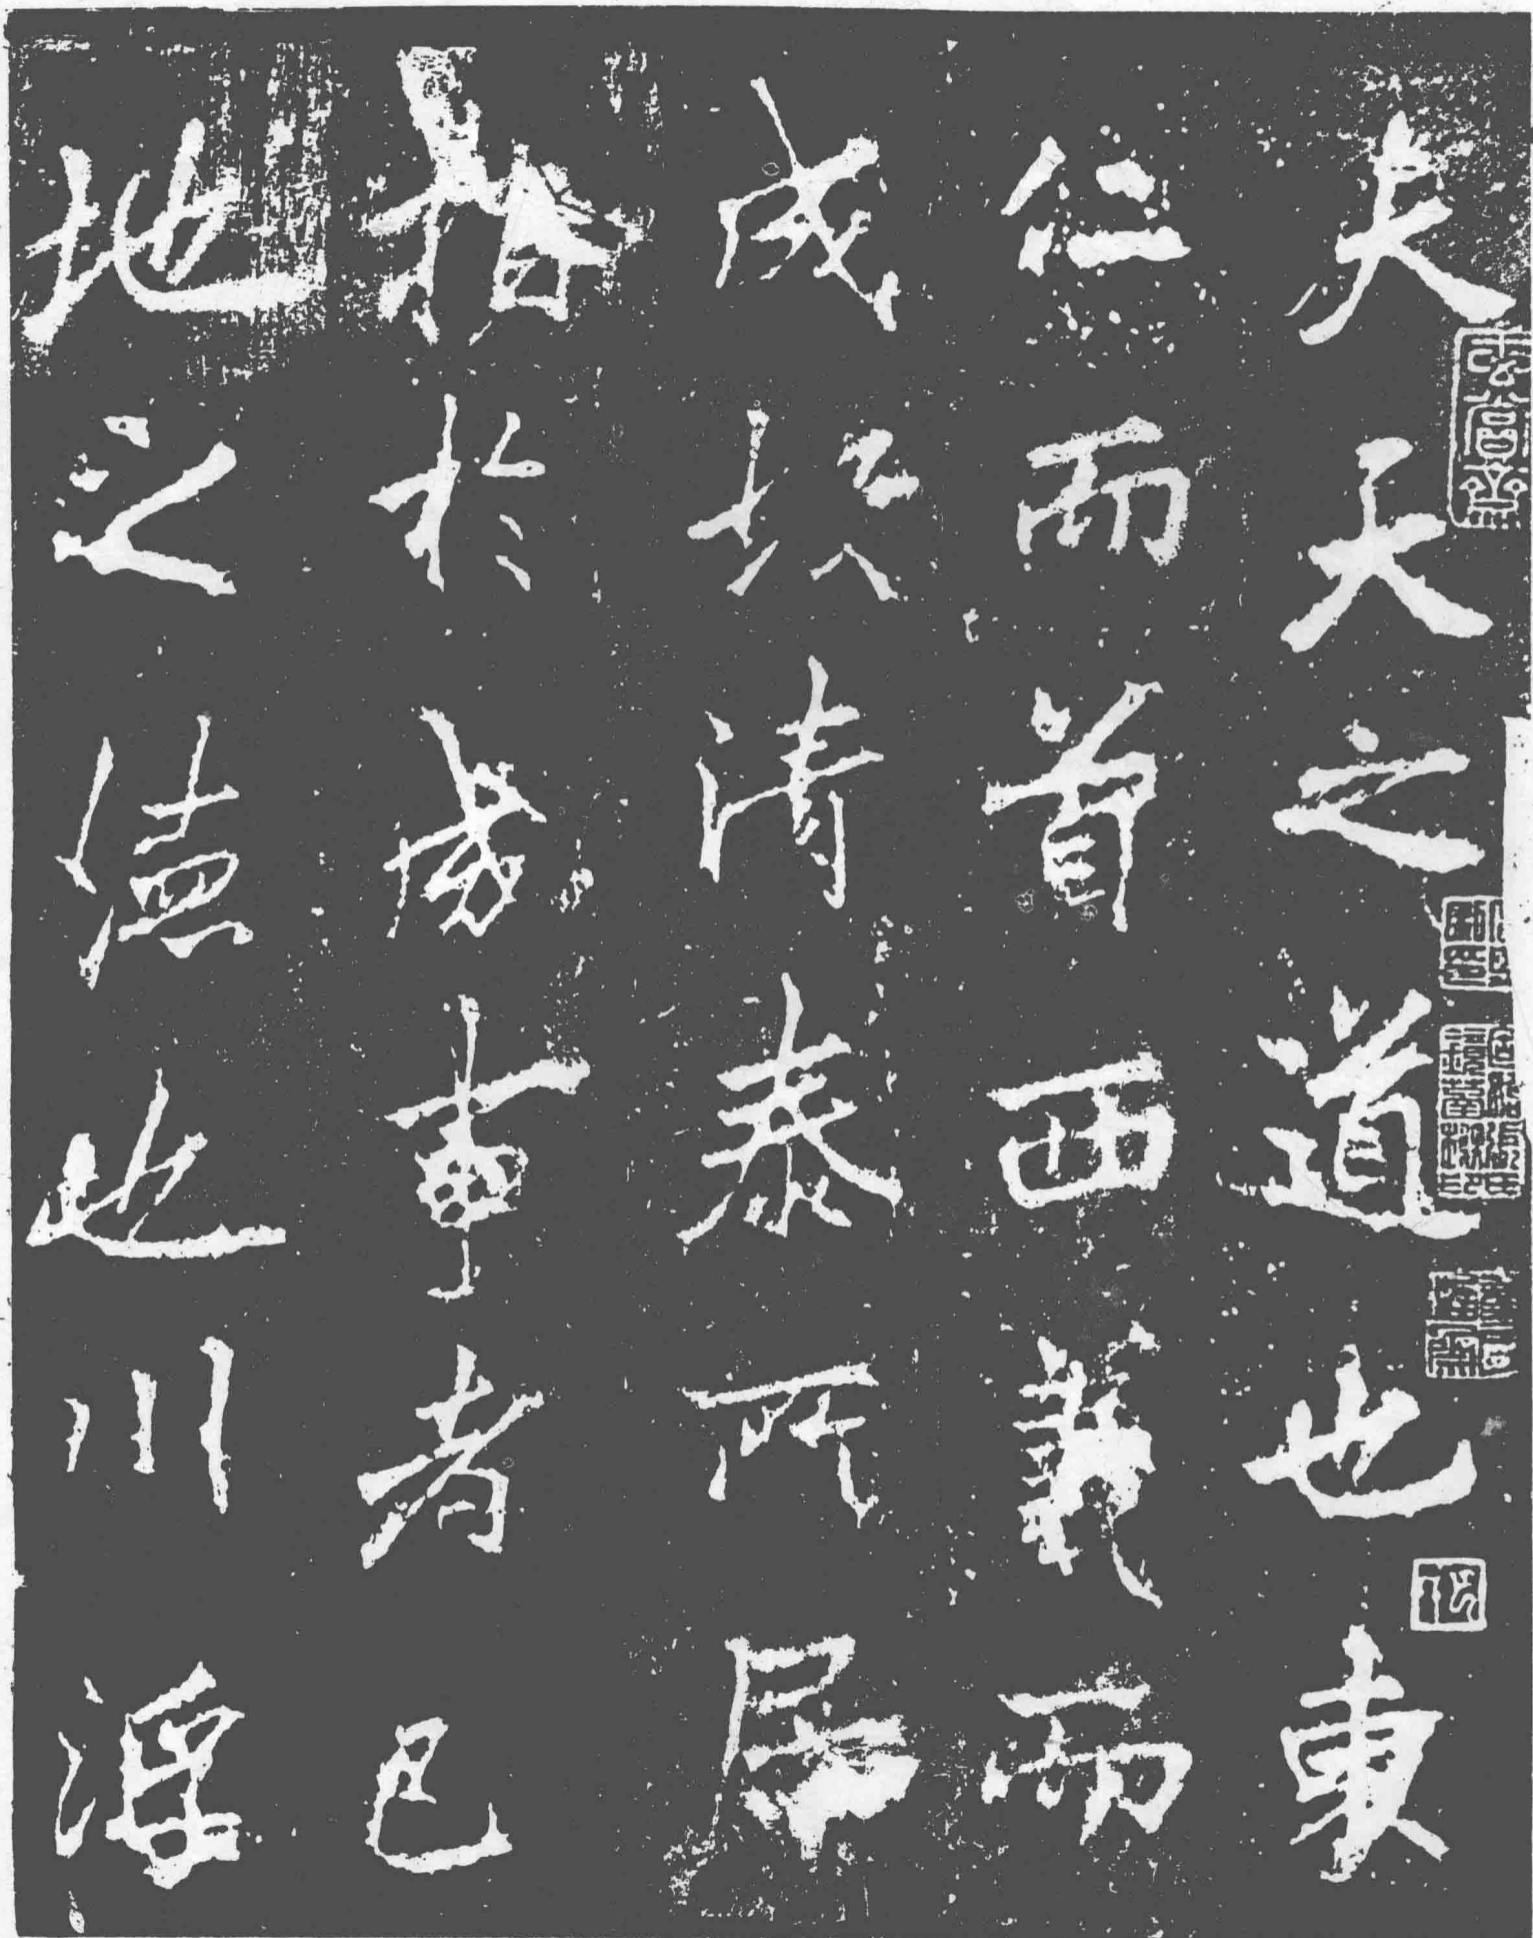 夫天之道也東
仁而首西義而
成故清泰所居
指於成事者已
地之德也川浮